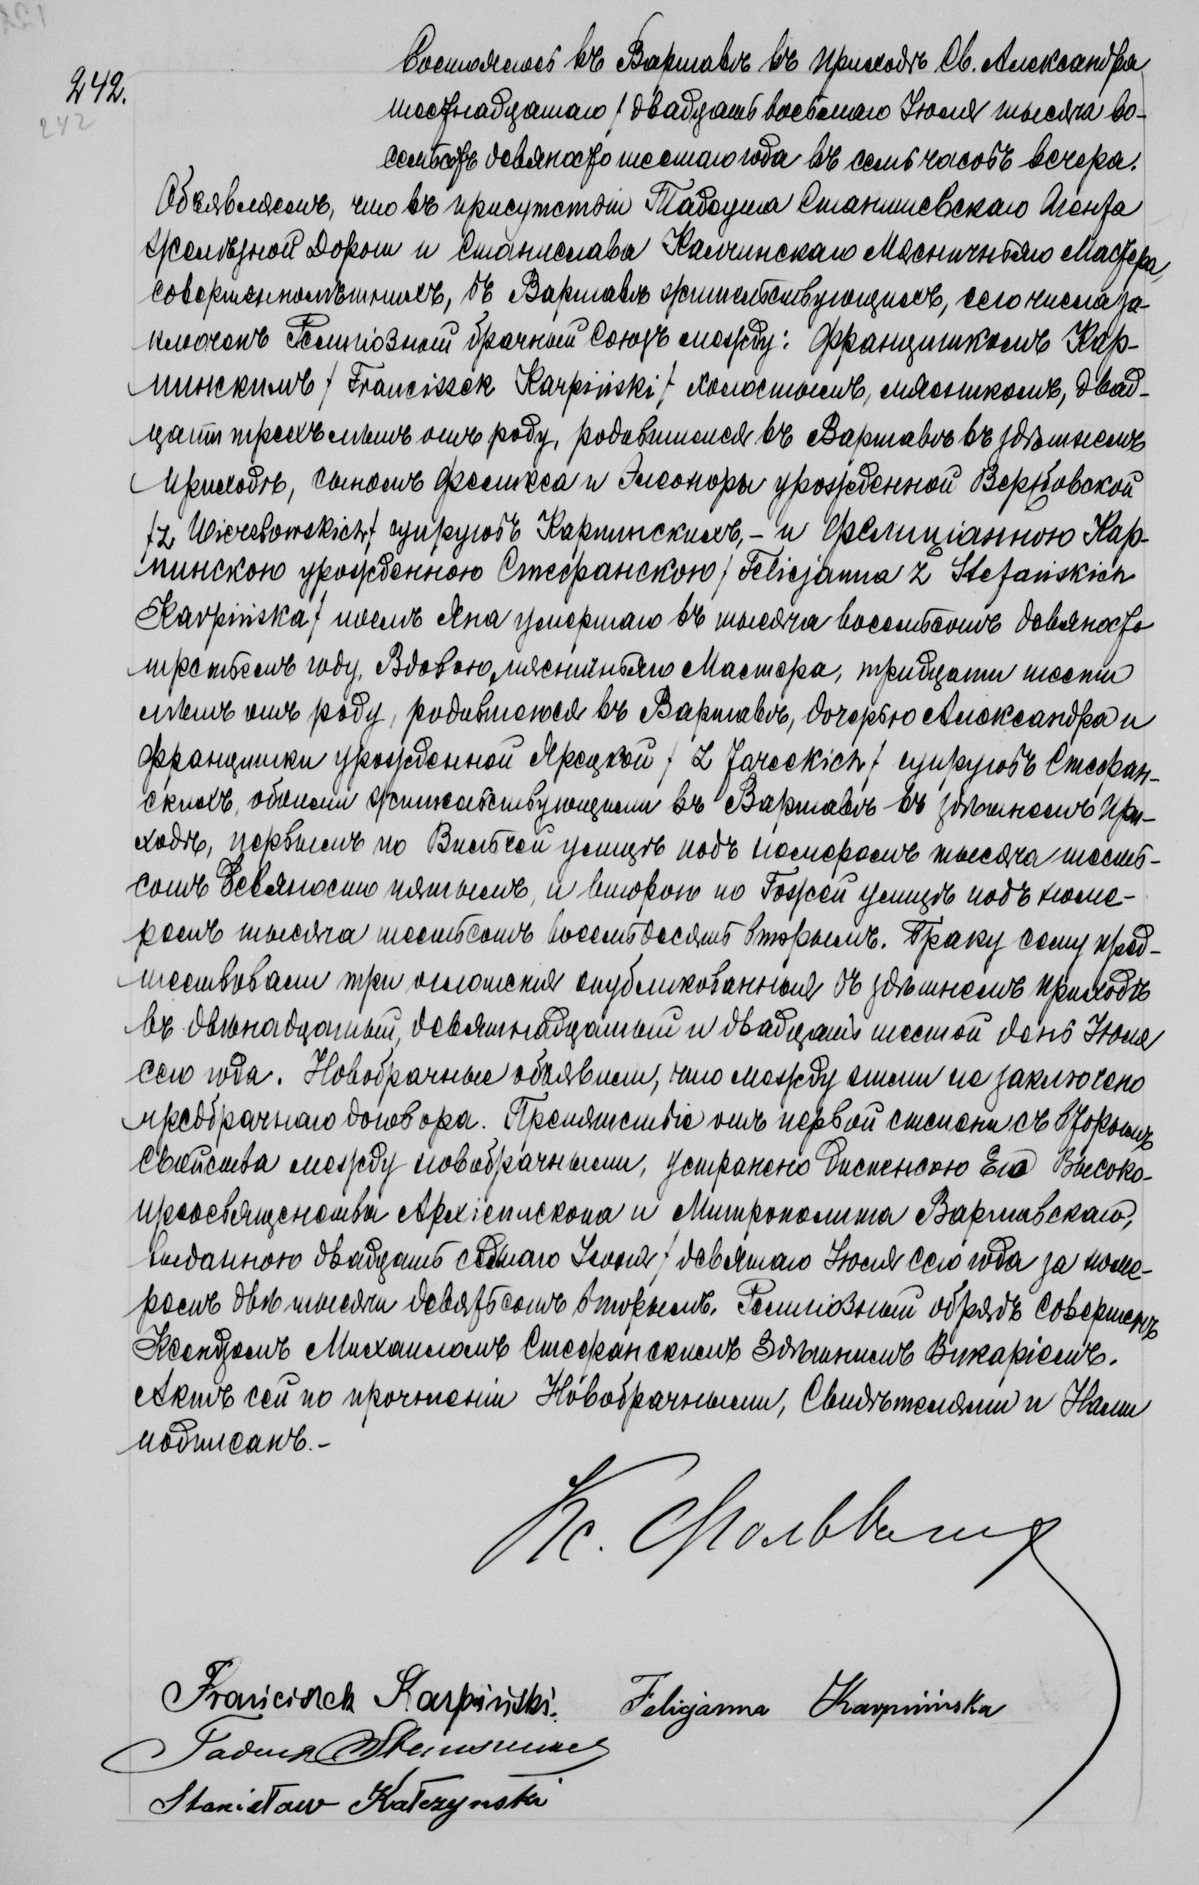 242.
242
Состоялось въ Варшавѣ въ приходѣ Св. Александра
шестнадцатаго / двадцать восьмаго Іюля тысяча во-
семьсотъ девяносто шестаго года въ семь часовъ вечера.
Объявляемъ, что въ присутствіи Тадеуша Станишевскаго Агента
Желѣзной Дороги и Станислава Калчинскаго Мясничьяго Мастера,
совершеннолѣтнихъ, въ Варшавѣ жительствующихъ, сего числа за-
ключенъ Религіозный брачный Союзъ между: Францишкомъ Кар-
пинскимъ / Franciszek Karpiński / холостымъ, мясникомъ, двад-
цати трехъ лѣтъ отъ роду, родившимся въ Варшавѣ въ здѣшнемъ
приходѣ, сыномъ Феликса и Элеоноры урожденной Вержбовской
/ z Wierzbowskich / супруговъ Карпинскихъ, – и Фелиціанною Кар-
пинскою урожденною Стефанскою / Felicjanna z Stefańskich
Karpińska / послѣ Яна умершаго въ тысяча восемьсотъ девяносто
третьемъ году, Вдовою, мясничьяго Мастера, тридцати шести
лѣтъ отъ роду, родившеюся въ Варшавѣ, дочерью Александра и
Францишки урожденной Ярецкой / z Jareckich / супруговъ Стефан-
скихъ, обоими жительствующими въ Варшавѣ въ здѣшнемъ при-
ходѣ, первымъ по Вильчей улицѣ подъ номеромъ тысяча шесть-
сотъ девяносто пятымъ, и второю по Гожей улицѣ подъ номе-
ромъ тысяча шестьсотъ восемьдесятъ вторымъ. Браку сему пред-
шествовали три оглашенія опубликованныя въ здѣшнемъ приходѣ
въ двѣнадцатый, девятнадцатый и двадцать шестой день Іюля
сего года. Новобрачные объявили, что между ними не заключено
предбрачнаго договора. Препятствіе отъ первой степени съ вторымъ
свойства между новобрачными, устранено Диспенсою Его Высоко-
преосвященства Архіепископа и Митрополита Варшавскаго,
выданною двадцать седьмаго Іюня / девятаго Іюля сего года за номе-
ромъ двѣ тысячи девятьсотъ вторымъ. Религіозный обрядъ совершенъ
Ксендзомъ Михаиломъ Стефанскимъ Здѣшнимъ Викаріемъ.
Актъ сей по прочтеніи Новобрачными, Свидѣтелями и Нами
подписанъ. –
Кс.
Franciszek Karpiński. Felicjanna Karpinińska
Tadeusz
Stanisław Kałczyński